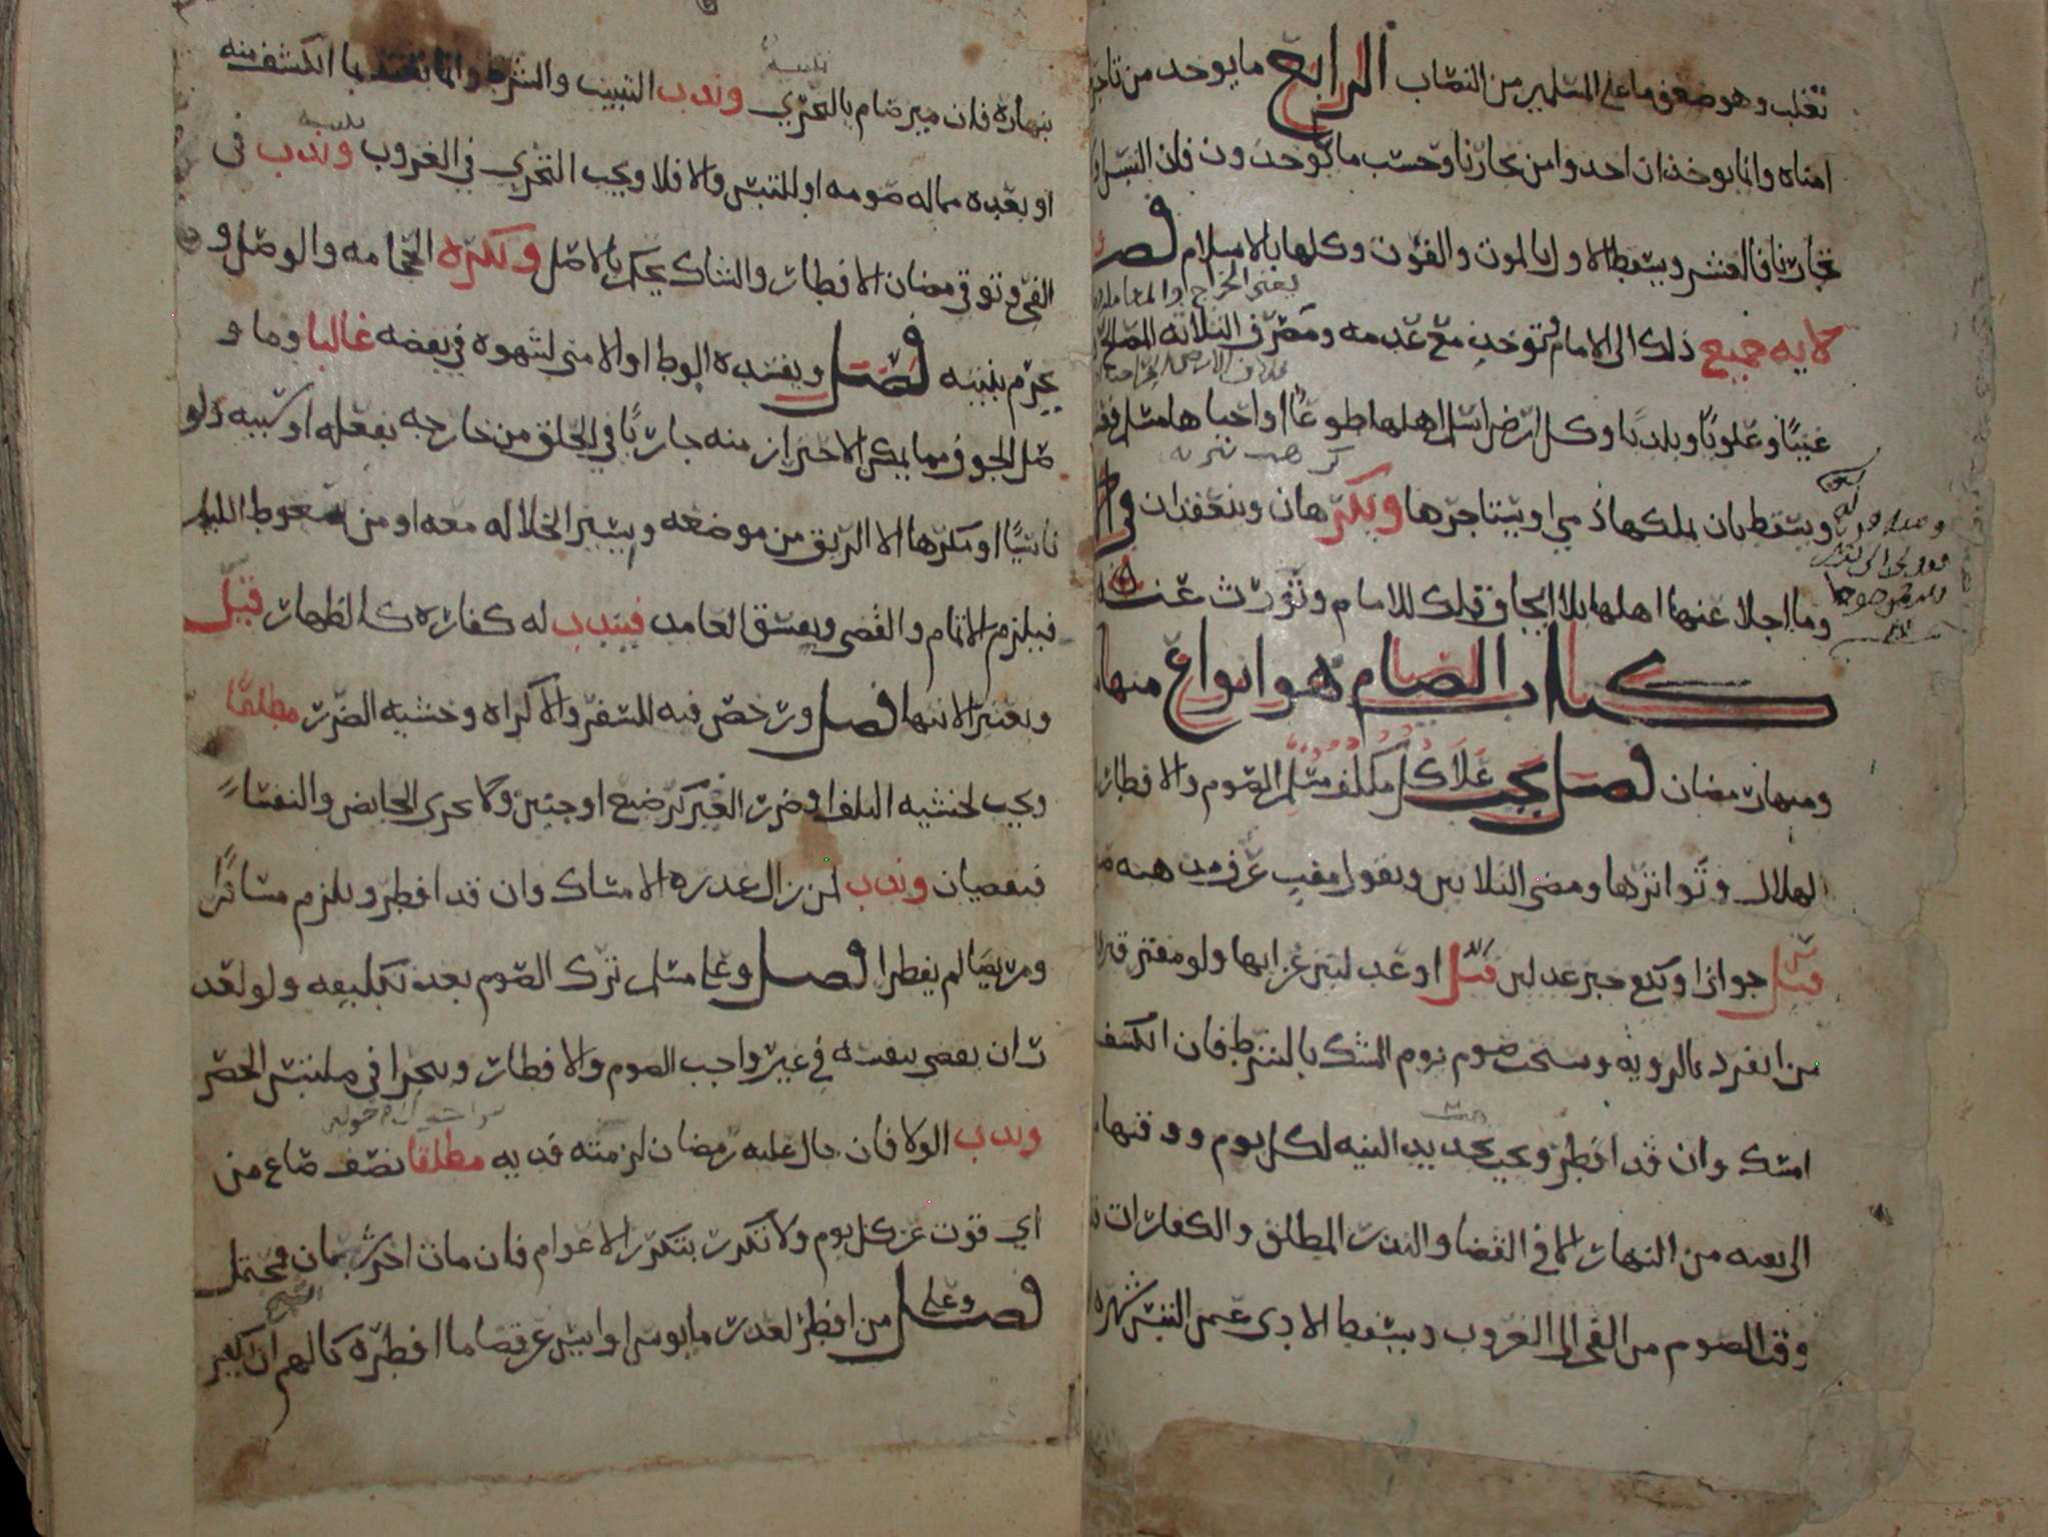 تغلب وهو ضعف ما على المسلمين من النصاب الرابع ما يوخذ من تاجر
امناه وانما يوخذ ان اخذوا من تجارنا وحسب ما يوخذون فان التبس او
تجارنا فالعشر ويسقط الاول بالموت والفوت وكلها بالاسلام فصل
يعني الخراج او المعاملة
ولايه جميع ذلك الى الامام وتوخذ مع عدمه ومصرف الثلاثه المصالح
غنيا وعلويا وبلديا وكل ارض اسلم اهلها طوعا او احياها مسلم فعشريه
كراهة تنزيه
ويسقطان بملكها ذمي او يستاجرها ويكرهان وينعقدان في
وما اجلا عنها اهلها بلا ايجاف فملك للامام وتورث عنه
كتاب الصيام هو انواع منها
ومنها رمضان فصل يجب على كل مكلف مسلم الصوم والافطار
الهلال وتواترها ومضى الثلاثين وبقول مفت عرف مذهبه
قيل جوازا وكفى خبر عدلين قيل او عدلتين عن ايها ولو مفترقين
من انفرد بالرويه ويستحب صوم يوم الشك بالشرط فان انكشف
امسك وان قد افطر ويجب تجديد النيه لكل يوم ووقتها
الى بقيه من النهار الا في القضا والنذر المطلق والكفارات
وقت الصوم من الفجر الى الغروب ويسقط الادى عمن التبس شهره
بنهاره فان ميز صام بالتحري وندب التبييت والشرط وانما يعتد بما انكشف منه
او بعده مما له صومه او التبس والا فلا ويجب التحري في الغروب وندب في
الفجر وتوقي مضان الافطار والشاك يحكم بالاصل وتكره الحجامه والوصل و
يحرم بنيته فصل ويفسده الوطء او الامنا لشهوه في يقضه غالبا وما و
صل الجوف مما يمكن الاحتراز منه جاريا في الحلق من خارجه بفعله او سببه ولو
ناسيا او مكرها الا الريق من موضعه ويسير الخلاله معه او من سعوط الليل
فيلزم الاتمام والقضى ويفسق العامد فيندب له كفاره كالظهار قيل
ويعتبر الانتها فصل ورخص فيه للسفر والاكراه وخشيه الضرر مطلقا
ويجب لخشيه التلف او ضرر الغير كرضيع او جنين ولا يجزي الحايض والنفساء
فيقضيان وندب لمن زال عذره الامساك وان قد افطر ويلزم مسافرا
ومريضا لم يفطرا فصل وعلى مسلم ترك الصوم بعد تكليفه ولو لعذ
ر ان يقضي بنفسه في غير واجب الصوم والافطار ويتحرا في ملتبس الحصر
وندب الولا فان حال عليه رمضان لزمته فديه مطلقا نصف صاع من
اي قوت عن كل يوم ولا تكرر بتكرر الاعوام فان مات اخر شعبان فمحتمل
فصل وعلى من افطر لعذر مايوس او ايس عن قضا ما افطره كالهم ان يكفر